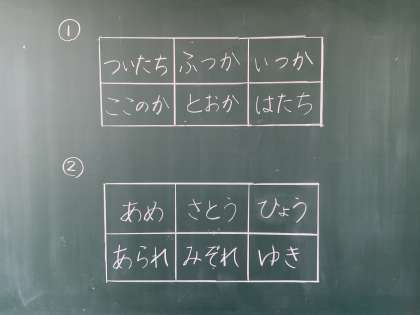 ①
ついたち ふつか いつか
ここのか とおか はたち
②
あめ さとう ひょう
あられ みぞれ ゆき